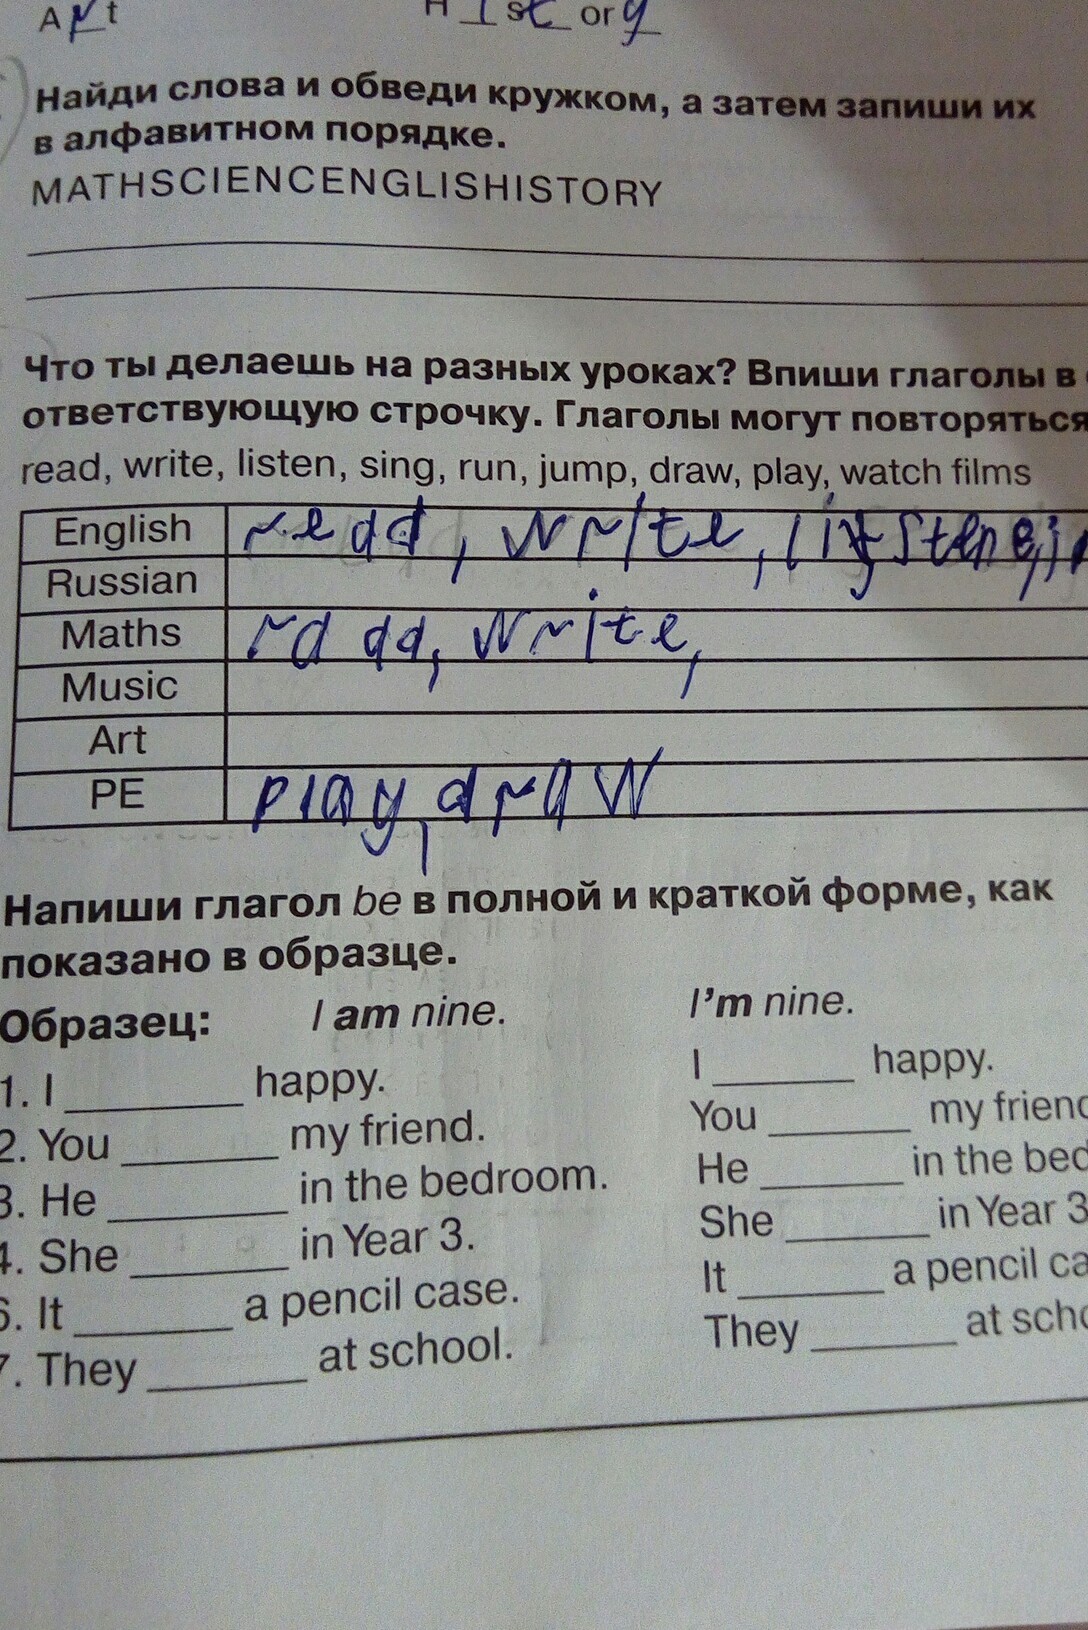 Art
History
Найди слова и обведи кружком, а затем запиши их
в алфавитном порядке.
MATHSCIENCENGLISHISTORY
Что ты делаешь на разных уроках? Впиши глаголы в
ответствующую строчку. Глаголы могут повторяться
read, write, listen, sing, run, jump, draw, play, watch films
English redd, write,
Russian
Maths rd dd, write,
Music
Art
PE play, draw
Напиши глагол be в полной и краткой форме, как
показано в образце.
Образец: I am nine. I'm nine.
1. I ______ happy. I ______ happy.
2. You ______ my friend. You ______ my friend
3. He ______ in the bedroom. He ______ in the bed
4. She ______ in Year 3. She ______ in Year 3
6. It ______ a pencil case. It ______ a pencil ca
7. They ______ at school. They ______ at scho